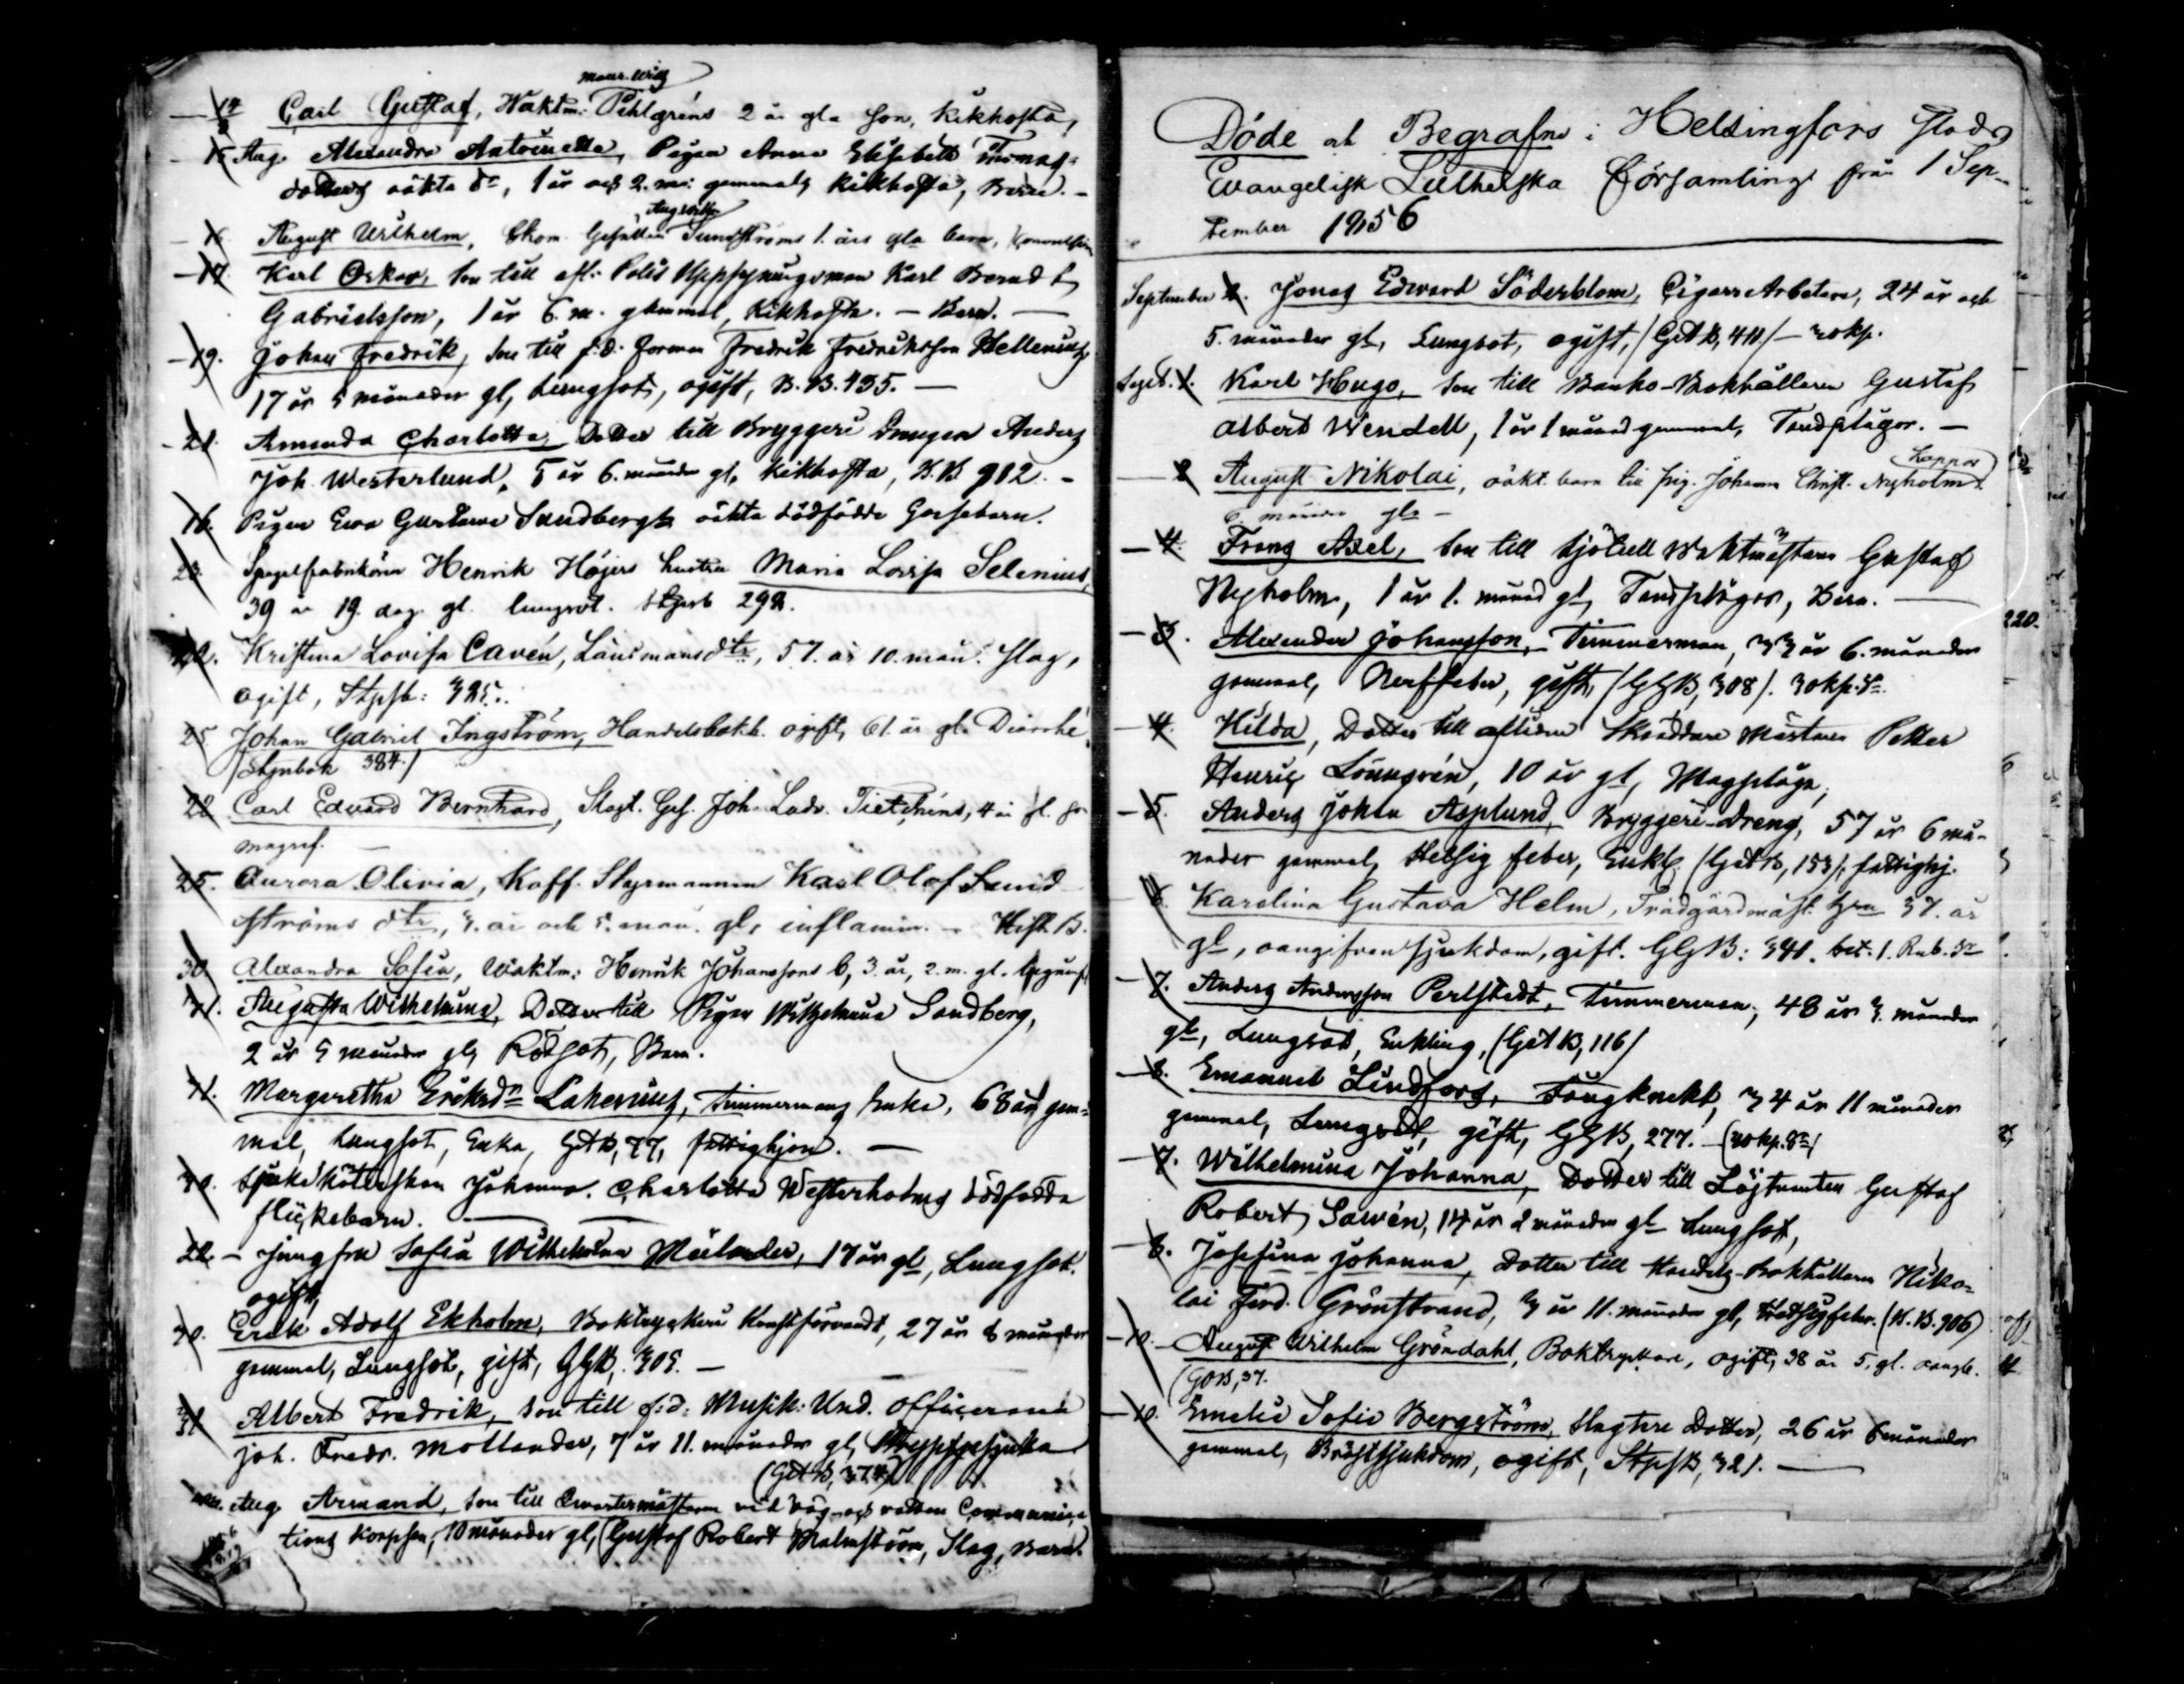 Carl Gustaf, Waktm: Pihlgréns 2 år gla son, Kikhosta,
15 Aug. Alexandra Antoinetta, Pigan Anna Elisabeth Thomas
dotters oäkta dr, 1 år och 2. mån: gammal, Kikhosta, Barn. -
16 August Wilhelm, Skom. Gesällen Sundströms 1. års gla barn,
17. Karl Oskar, Son till afl: Polis Uppsyningsman Karl Bernd
Gabrielsson, 1 år 6. m. gammal, Kikhosta. - Barn. -
19. Johan Fredrik, Son till f:d: Forman Fredrik Fredriksson Hellenius,
17 år 5 månader gl, Lungsot, ogift, B.B. 455. -
21. Armanda Charlotta, Dotter till Bryggeri Drengen Anders
Joh. Westerlund, 5 år 6. månader gl, Kikhosta, B.B 912. -
16. Pigan Ewa Gustava Sandbergs oäkta dödfödda Gossebarn.
23. Spegelfabrikören Henrik Höjers hustru Maria Lovisa Selenius,
39 år 19. dag. gl. lungsot. 292.
Kristina Lovisa Cavén, Länsmansdtr, 57. år 10. mån. slag,
ogift, Stpsb: 325.
25 Johan Gabriel Ingström, Handelsbokh. ogift, 61. år gl. Diarrhé
384.
22 Carl Edvard Bernhard, Slagt. Ges. Joh. Ludv. 4 år gl.
magref.
25. Aurora Olivia, Koff. Styrmannen Karl Olof Sund
ströms dtr, 3. år och 5. mån. gl, inflamm. -
30 Alexandra Sofia, Waktm: Henrik Johanssons b, 3. år, 2. m. gl.
31. Augusta Wilhelmina, Dotter till Pigan Wilhelmina Sandberg,
2 år 5 månader gl, Rödsot, Barn.
31. Margaretha Eriksdr Lahenius, Timmermans Enka, 68 år gam-
mal, Lungsot, Enka, GEB, 77, fattighjon. -
30. Sjuksköterskan Johanna Charlotta Westerholms dödfödda
flickebarn.
22. - Jungfru Sofia Wilhelmina Melander, 17 år gl, Lungsot.
ogift,
30. Erik Adolf Ekholm, Boktryckeri Konstförvandt, 27 år 8 månader
gammal, Lungsot, gift, GGB, 305. -
31. Albert Fredrik, son till f:d: Musik: Und. Officeraren
Joh. Fredr. Mollander, 7 år 11. månader gl,
Aug. Armand, Son till Qvartermästaren vid Väg- och vatten Communica
tions Korpsen, 10 månader gl, Gustaf Robert Malmström, Slag, Barn.
Döde och Begrafne i Helsingfors Stads
Evangelisk Lutherska Församling från 1 Sep-
tember 1856
September 2. Jonas Edvard Söderblom, Cigarr Arbetare, 24 år och
5. månader gl, Lungsot, ogift,
Sept. 1. Karl Hugo, Son till Banko-Bokhållaren Gustaf
Albert Wendell, 1 år 1 månad gammal, Tandplågor. -
2 August Nikolai, oäkt. barn till pig. Johanna Christ. Nyholm
6. månader gla -
4. Frans Axel, Son till Waktmästaren Gustaf
Nyholm, 1 år 1. månad gl, Tandplågor, Barn. -
3. Alexander Johansson, Timmerman, 33 år 6. månader
gammal, Nerffeber, gift, (GGB, 308). 30 kp. Sr.
4. Hilda, Dotter till aflidne Skräddare Mästaren Petter
Henric Lönnqvén, 10 år gl, Magplåga,
5. Anders Johan Asplund, Bryggeri-Dreng, 57 år 6 må-
nader gammal, Hetsig feber, Enkl. 153, fattighj.
6. Karolina Gustava Helm, Trädgårdmäst. hru 37. år
gl, oangifven sjukdom, gift. GGB: 341. bet. 1. Rub. Sr
7. Anders Andersson Perlstedt, Timmerman, 48 år 3. månader
gl, Lungsot, Enkling, (GEB, 116)
8. Emanuel Lindfors, Fångknekt, 34 år 11 månader
gammal, Lungsot, gift, GGB, 277.
7. Wilhelmina Johanna, Dotter till Löjtnanten Gustaf
Robert Sawén, 14 år 2 månader gl Lungsot,
8. Josefina Johanna, Dotter till Handels-Bokhållaren Niko-
lai Ferd. Grönstrand, 3 år 11. månader gl, Hetsig feber. (B.B. 906)
10. August Wilhelm Gröndahl, Boktryckare, ogift, 38 år 5. gl.
37.
10. Emelie Sofie Bergström, Slagtare Dotter, 26 år 6 månader
gammal, Bröstsjukdom, ogift, StpsB, 321. -
220.